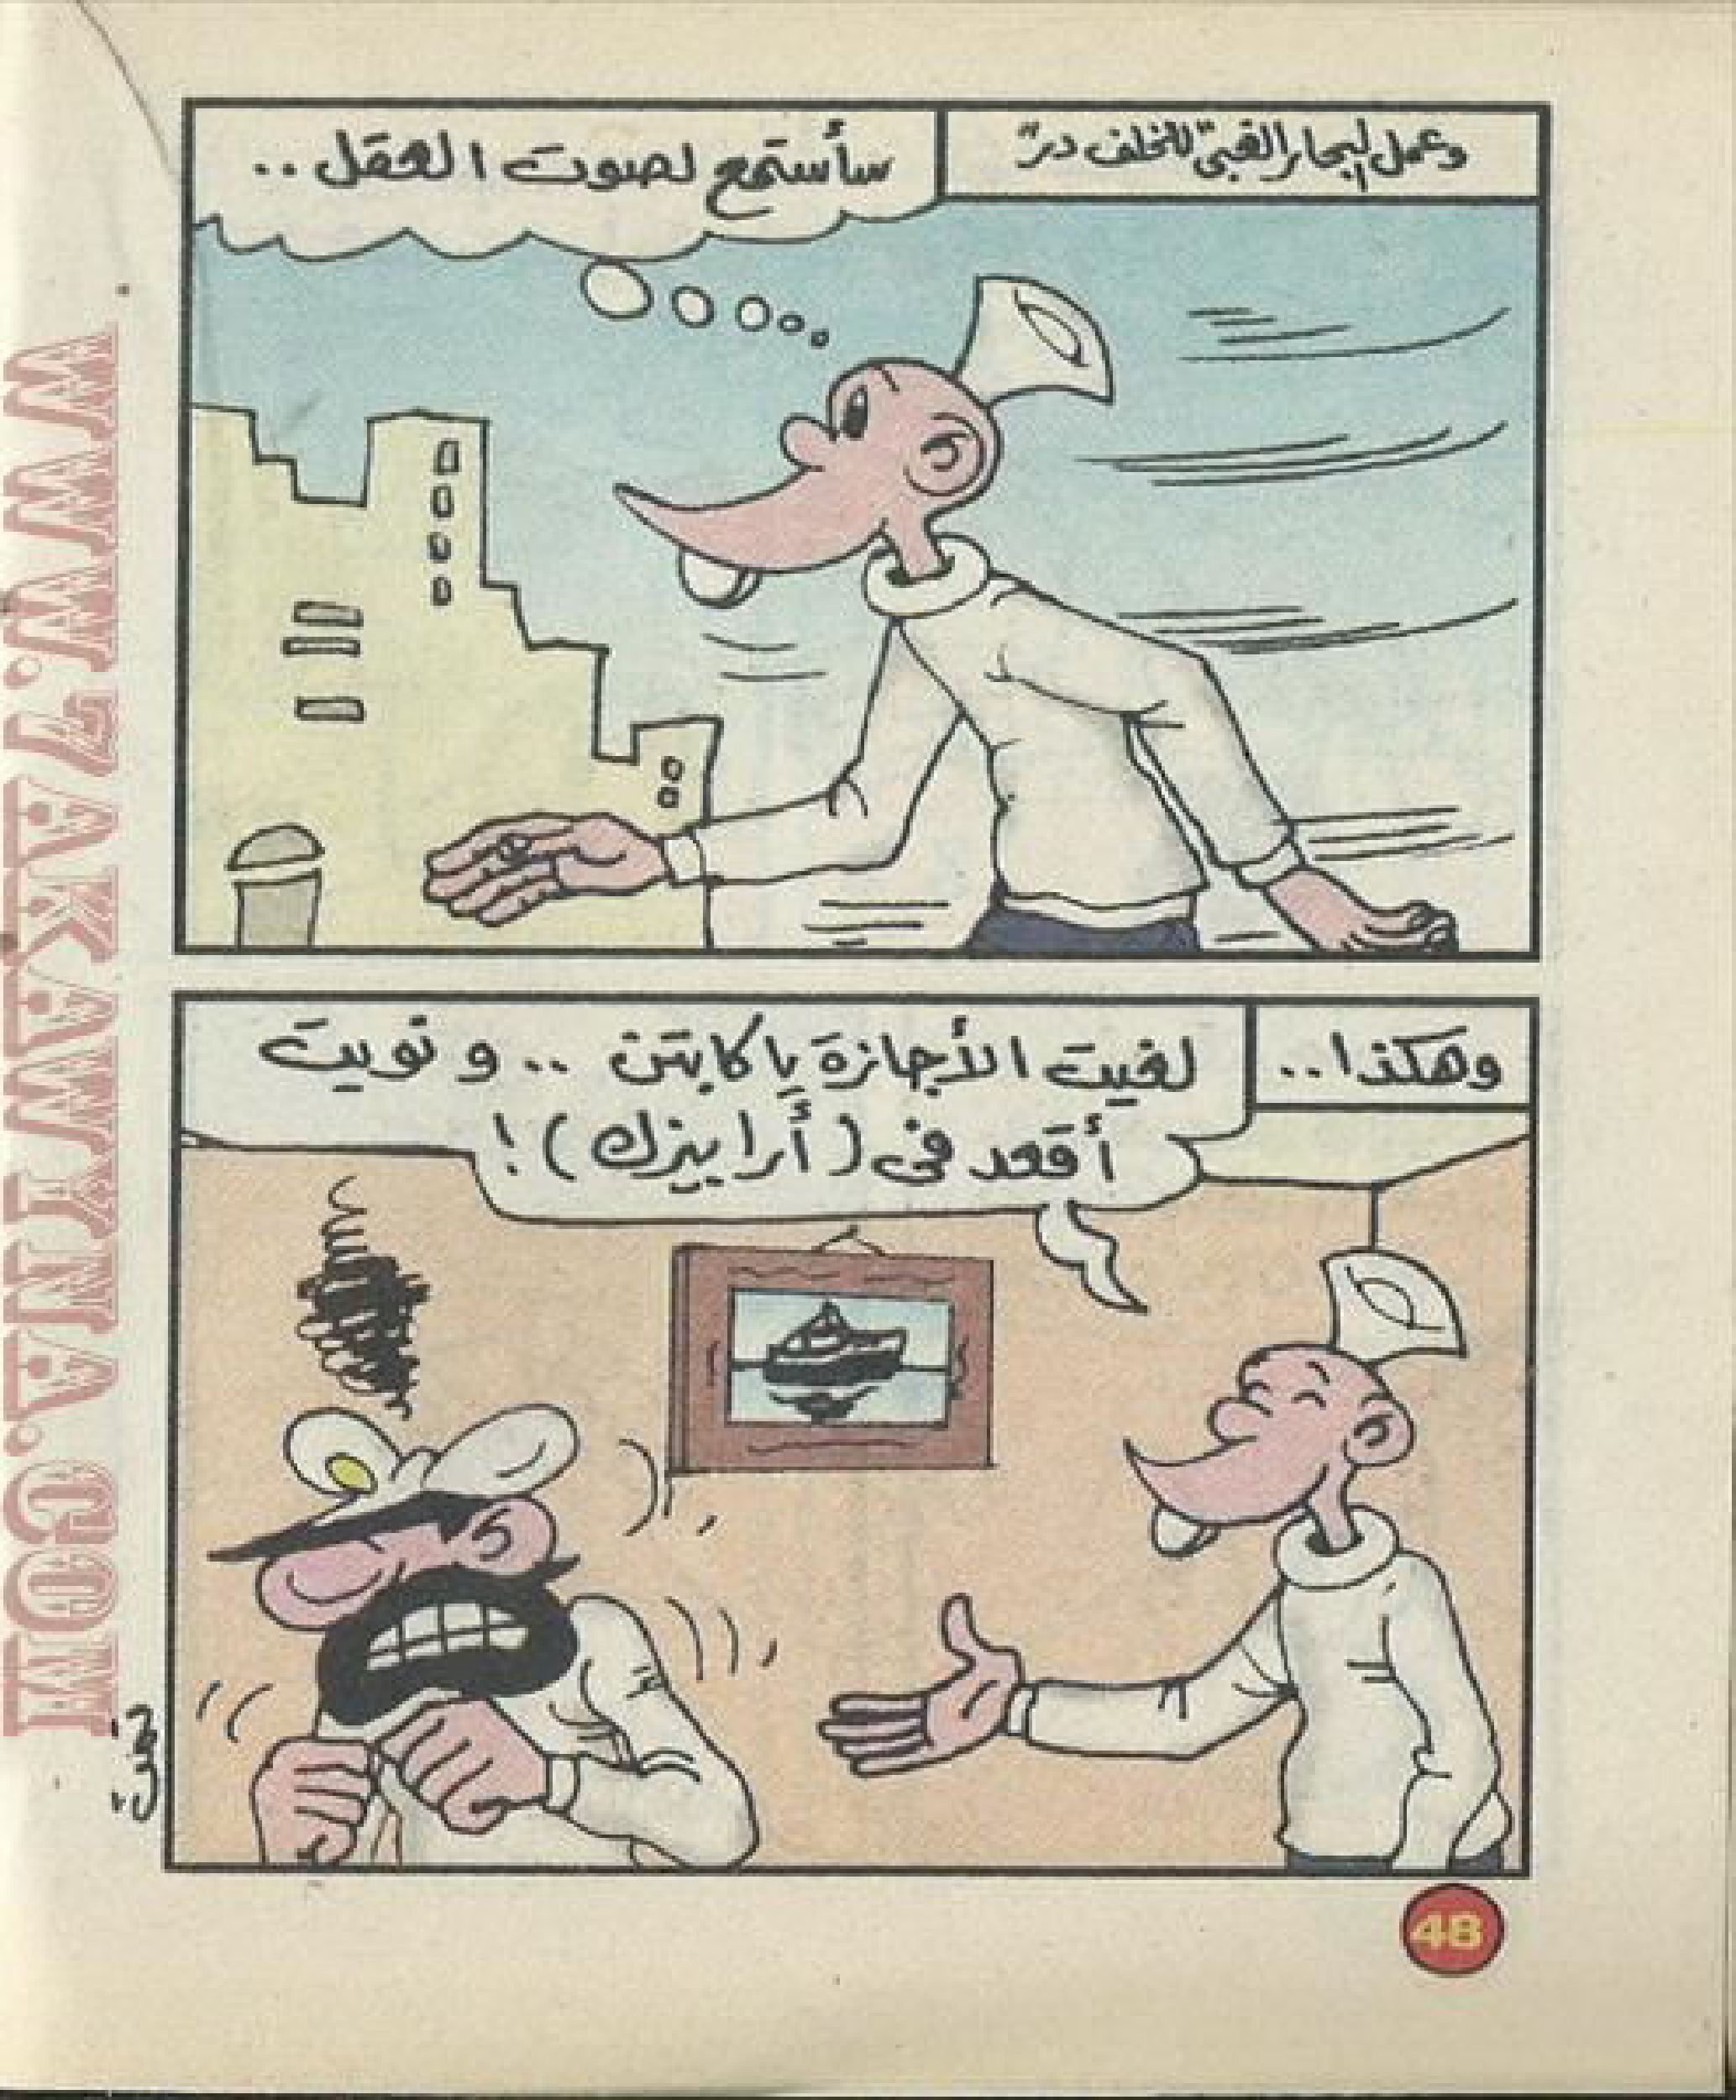 وعمل البحار الغبى "للخلف در"
سأستمع لصوت العقل ..
وهكذا ..
لغيت الأجازة ياكابتن .. ونويت
أقعد فى (أرابيزك) !
48
WWW.ZAKAWINA.COM